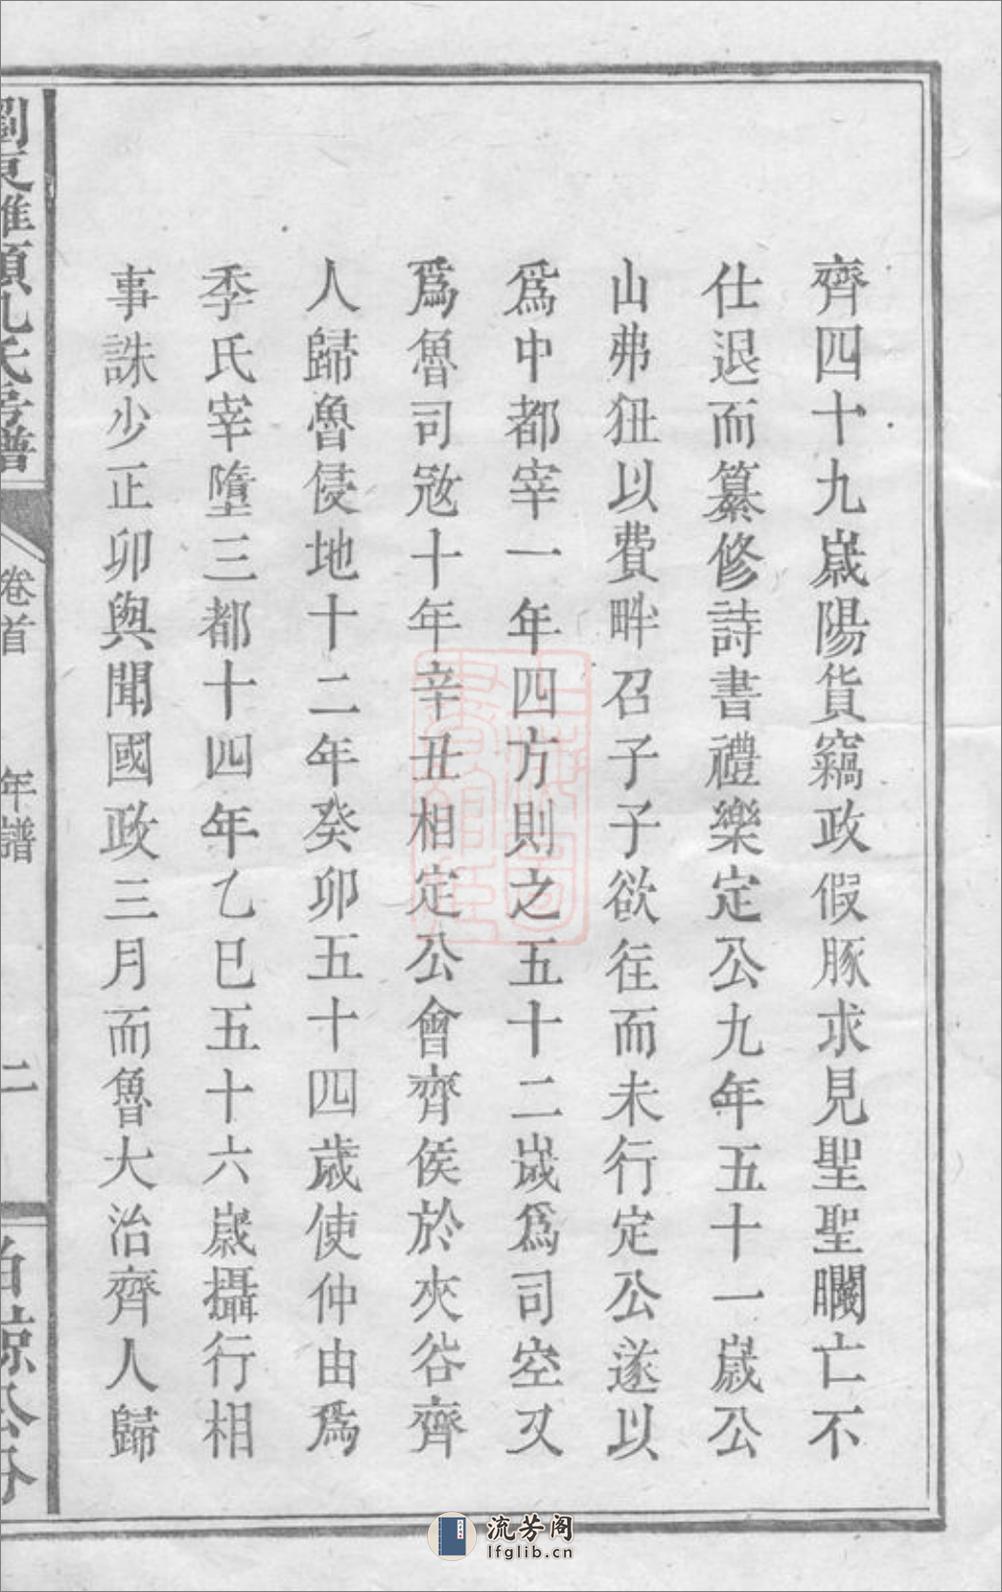 齊四十九歲陽貨竊政假豚求見聖聖矙亡不
仕退而纂修詩書禮樂定公九年五十一歲公
山弗狃以費畔召子子欲往而未行定公遂以
爲中都宰一年四方則之五十二歲爲司空又
爲魯司寇十年辛丑相定公會齊侯於夾谷齊
人歸魯侵地十二年癸卯五十四歲使仲由爲
季氏宰墮三都十四年乙巳五十六歲攝行相
事誅少正卯與聞國政三月而魯大治齊人歸
卷首
年譜
二
流芳阁
lfglib.cn